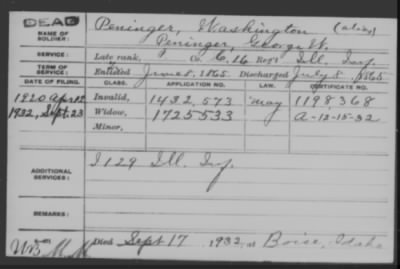 DEAD
NAME OF SOLDIER: Peninger, Washington (alias)
Peninger, George W.
SERVICE: Late rank, Co. C. 16 Reg't Ill. Inf.
TERM OF SERVICE: Enlisted June 8, 1865 Discharged July 8, 1865
DATE OF FILING. CLASS. APPLICATION NO. LAW. CERTIFICATE NO.
1920 Apr 12 Invalid, 1432,573 May 1198368
1932, Sept. 23 Widow, 1725533 A-12-15-32
Minor,
ADDITIONAL SERVICES: I 129 Ill. Inf.
REMARKS:
Died Sept 17, 1932, at Boise, Idaho